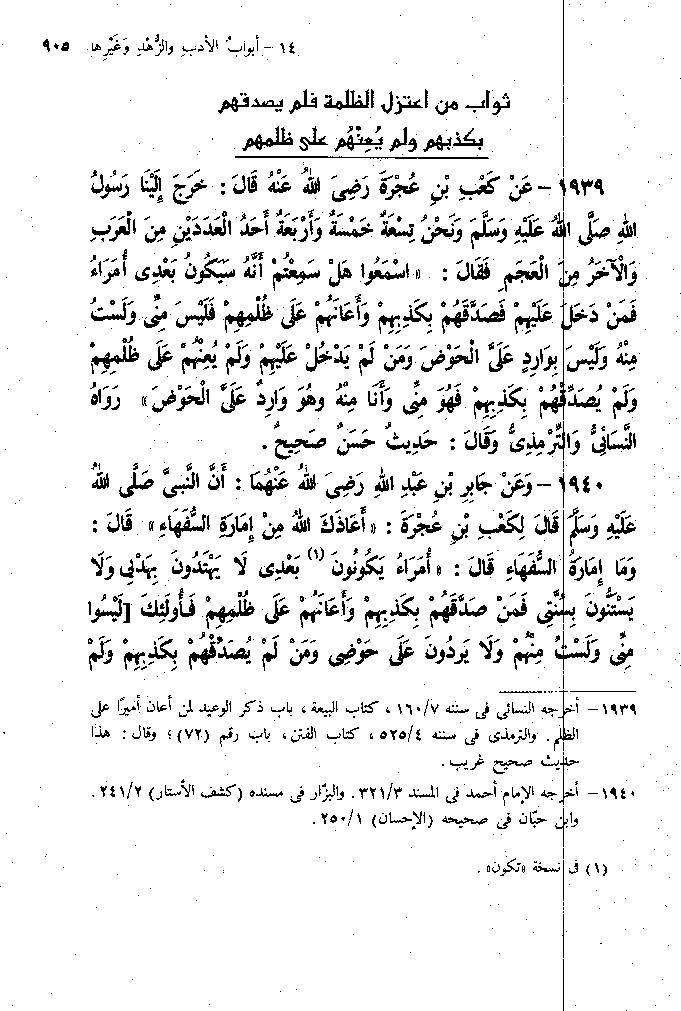 ١٤ - أبوابُ الأدبِ والزُّهْدِ وَغَيْرِها ٩٠٥
ثواب من اعتزل الظلمة فلم يصدقهم
بكذبهم ولم يُعِنْهُم على ظلمهم
١٩٣٩ - عَنْ كَعْبِ بْنِ عُجْرَةَ رَضِىَ اللهُ عَنْهُ قَالَ : خَرَجَ إِلَيْنَا رَسُولُ
اللهِ صَلَّى اللهُ عَلَيْهِ وَسَلَّمَ وَنَحْنُ تِسْعَةٌ خَمْسَةٌ وَأَرْبَعَةٌ أَحَدُ الْعَدَدَيْنِ مِنَ الْعَرَبِ
وَالْآخَرُ مِنَ الْعَجَمِ فَقَالَ : « اسْمَعُوا هَلْ سَمِعْتُمْ أَنَّهُ سَيَكُونُ بَعْدِى أُمَرَاءُ
فَمَنْ دَخَلَ عَلَيْهِمْ فَصَدَّقَهُمْ بِكَذِبِهِمْ وَأَعَانَهُمْ عَلَى ظُلْمِهِمْ فَلَيْسَ مِنِّى وَلَسْتُ
مِنْهُ وَلَيْسَ بِوَارِدٍ عَلَىَّ الْحَوْضَ وَمَنْ لَمْ يَدْخُلْ عَلَيْهِمْ وَلَمْ يُعِنْهُمْ عَلَى ظُلْمِهِمْ
وَلَمْ يُصَدِّقْهُمْ بِكَذِبِهِمْ فَهُوَ مِنِّى وَأَنَا مِنْهُ وَهُوَ وَارِدٌ عَلَىَّ الْحَوْضَ » رَوَاهُ
النَّسَائِىُّ وَالتِّرْمِذِىُّ وَقَالَ : حَدِيثٌ حَسَنٌ صَحِيحٌ .
١٩٤٠ - وَعَنْ جَابِرِ بْنِ عَبْدِ اللهِ رَضِىَ اللهُ عَنْهُمَا : أَنَّ النَّبِىَّ صَلَّى اللهُ
عَلَيْهِ وَسَلَّمَ قَالَ لِكَعْبِ بْنِ عُجْرَةَ : « أَعَاذَكَ اللهُ مِنْ إِمَارَةِ السُّفَهَاءِ » قَالَ :
وَمَا إِمَارَةُ السُّفَهَاءِ قَالَ : « أُمَرَاءُ يَكُونُونَ (١) بَعْدِى لَا يَهْتَدُونَ بِهَدْيِى وَلَا
يَسْتَنُّونَ بِسُنَّتِى فَمَنْ صَدَّقَهُمْ بِكَذِبِهِمْ وَأَعَانَهُمْ عَلَى ظُلْمِهِمْ فَأُولَئِكَ [لَيْسُوا
مِنِّى وَلَسْتُ مِنْهُمْ وَلَا يَرِدُونَ عَلَى حَوْضِى وَمَنْ لَمْ يُصَدِّقْهُمْ بِكَذِبِهِمْ وَلَمْ
١٩٣٩ - أخرجه النسائى فى سننه ١٦٠/٧ ، كتاب البيعة ، باب ذكر الوعيد لمن أعان أميرًا على
الظلم. والترمذى فى سننه ٥٢٥/٤ ، كتاب الفتن ، باب رقم (٧٢) ؛ وقال : هذا
حديث صحيح غريب .
١٩٤٠ - أخرجه الإمام أحمد فى المسند ٣٢١/٣ . والبزّار فى مسنده (كشف الأستار) ٢٤١/٢ .
وابن حبّان فى صحيحه (الإحسان) ٢٥٠/١ .
(١) فى نسخة «تكون» .